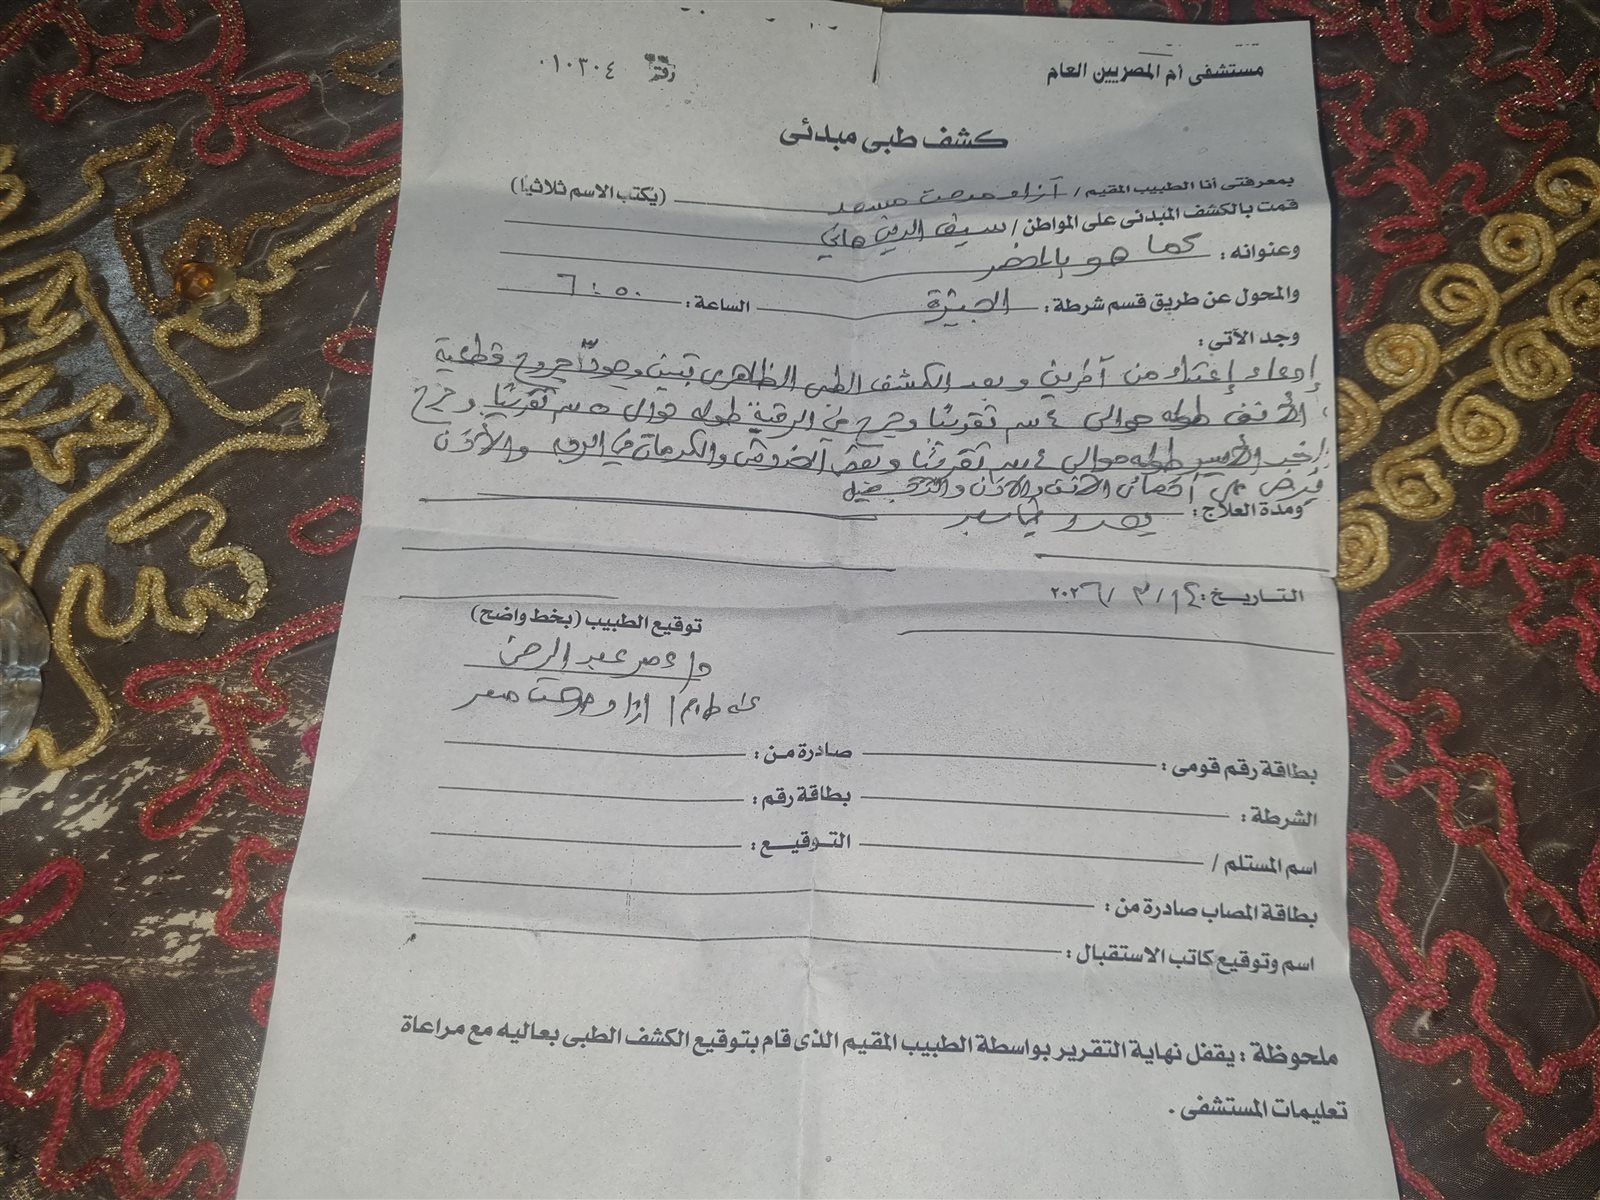 مستشفى أم المصريين العام
رقم ٠١٠٣٠٤
كشف طبى مبدئى
بمعرفتى أنا الطبيب المقيم / مدحت (يكتب الاسم ثلاثيا)
قمت بالكشف المبدئى على المواطن / سيف الدين هاني
وعنوانه : كما هو بالمحضر
والمحول عن طريق قسم شرطة : الجيزة الساعة : ٦:٥٠
وجد الآتي :
إدعاء إعتداء من آخرين و بعد الكشف الطبى الظاهرى تبين وجود جروح قطعية
الأنف طوله حوالى ٤ سم تقريبًا وجرح في الرقبة طوله حوالى ٥ سم تقريبًا وجرح
الأيسر طوله حوالى ٤ سم تقريبًا وبعض الخدوش والكدمات في والأذن
على الأنف والأذن
ومدة العلاج :
التاريخ : ١٤ / ٣ / ٢٠٢٦
توقيع الطبيب (بخط واضح)
د/ عبد الرحمن
بطاقة رقم قومى : صادرة من :
الشرطة : بطاقة رقم :
اسم المستلم / التوقيع :
بطاقة المصاب صادرة من :
اسم وتوقيع كاتب الاستقبال :
ملحوظة : يقفل نهاية التقرير بواسطة الطبيب المقيم الذى قام بتوقيع الكشف الطبى بعاليه مع مراعاة
تعليمات المستشفى .